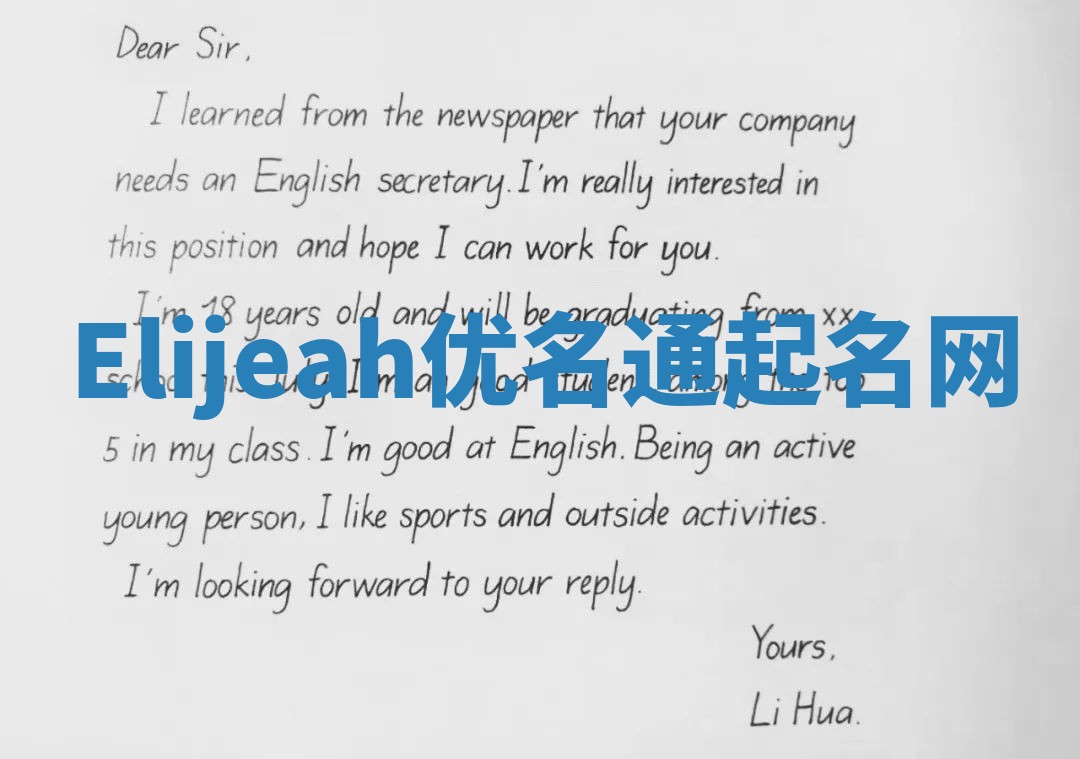 Dear Sir,
I learned from the newspaper that your company
needs an English secretary. I'm really interested in
this position and hope I can work for you.
I'm 18 years old and will be graduating from xx
Elijeah优名通起名网
school this July. I'm a good student among the top
5 in my class. I'm good at English. Being an active
young person, I like sports and outside activities.
I'm looking forward to your reply.
Yours,
Li Hua.